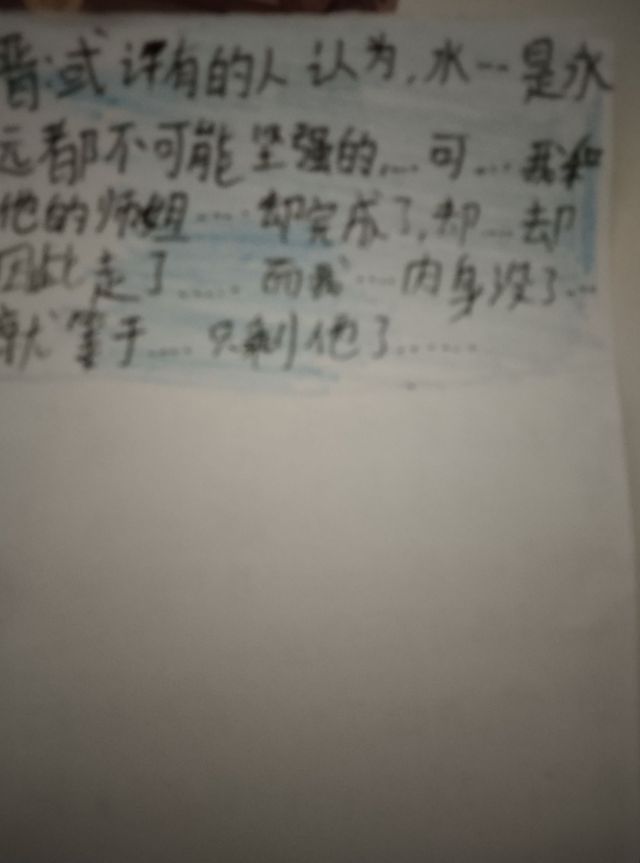 晋:或许有的人认为,水…是永
远都不可能坚强的……可…我和
他的师姐……却完成了,却…却
因此走了……而我…内身没了…
就等于……只剩他了……